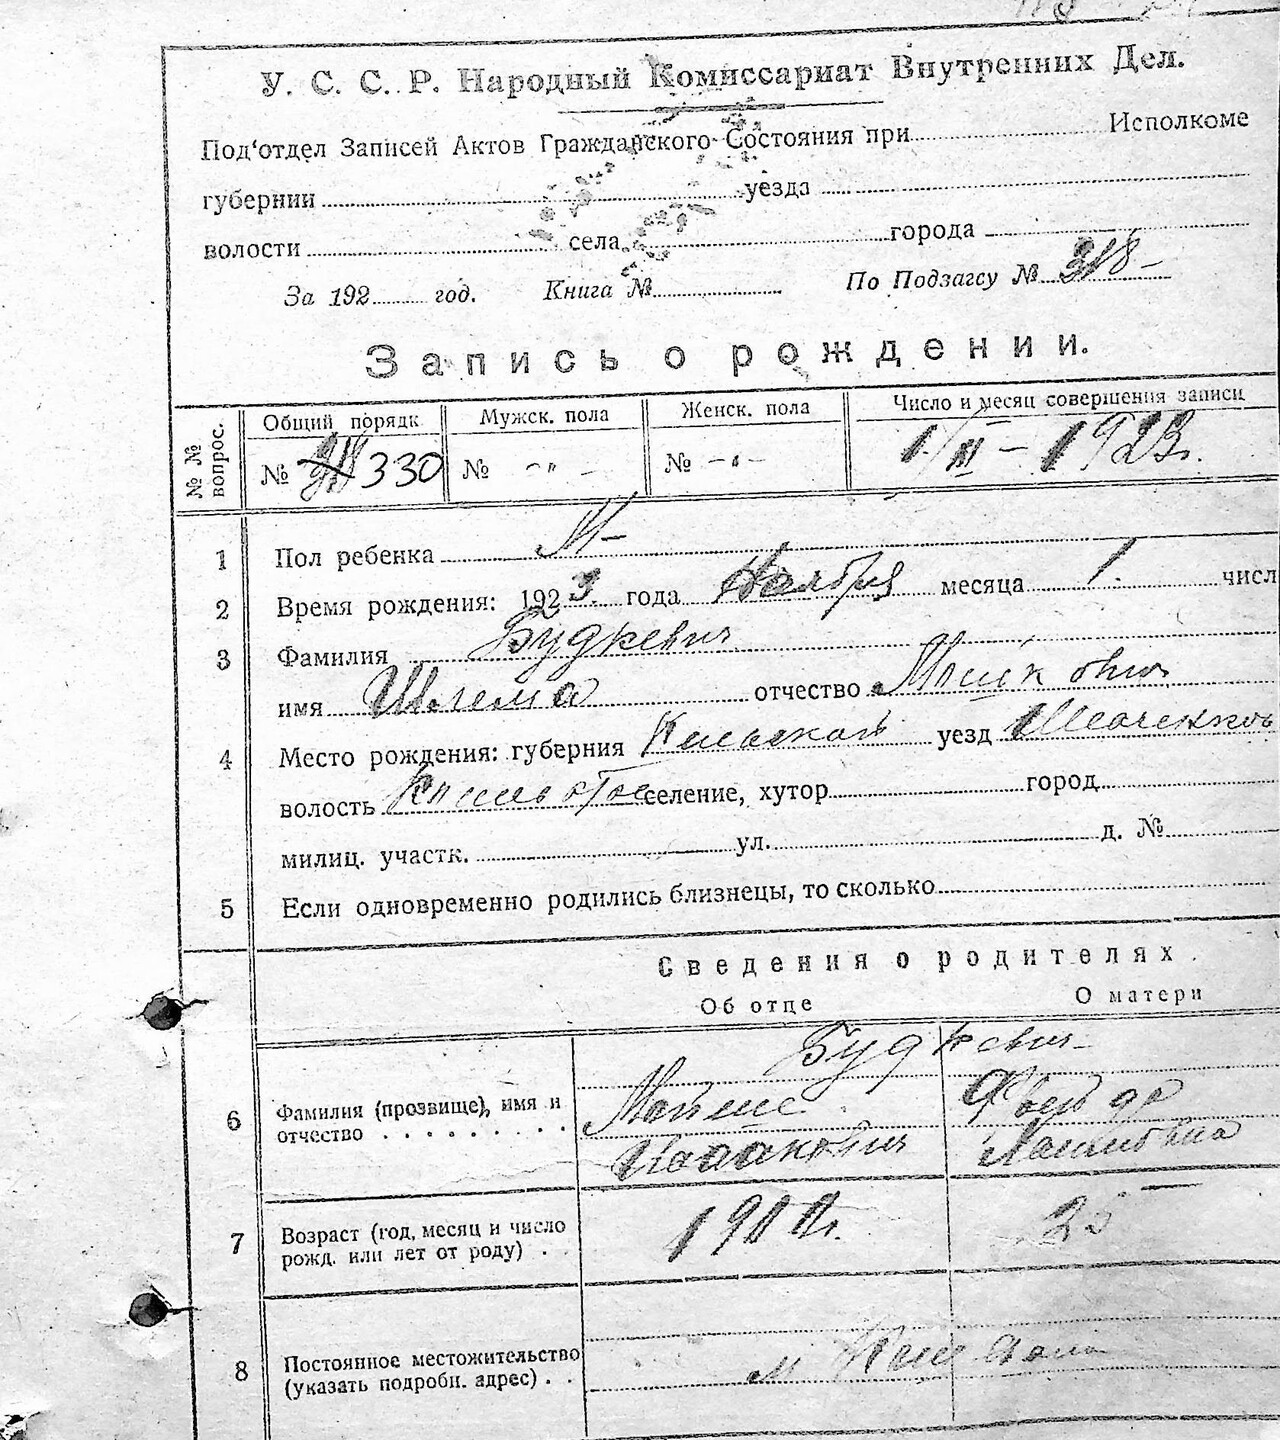 У. С. С. Р. Народный Комиссариат Внутренних Дел.
Под'отдел Записей Актов Гражданского Состояния при Исполкоме
губернии уезда
волости села города
За 192 год. Книга № По Подзагсу № 318-
Запись о рождении.
№ № вопрос.
Общий порядк Мужск. пола Женск. пола Число и месяц совершения записи
№ 330 № -"- № -"- 1/III - 1923г.
1 Пол ребенка М-
2 Время рождения: 1923. года Ноября месяца 1. числ
3 Фамилия Будкевич
имя Шлема отчество Мошкович
4 Место рождения: губерния уезд
волость селение, хутор город
милиц. участк. ул. д. №
5 Если одновременно родились близнецы, то сколько
Сведения о родителях.
Об отце О матери
Будкевич
6 Фамилия (прозвище), имя и отчество
Исаакович
7 Возраст (год, месяц и число рожд. или лет от роду) 25
8 Постоянное местожительство (указать подробн. адрес)
м